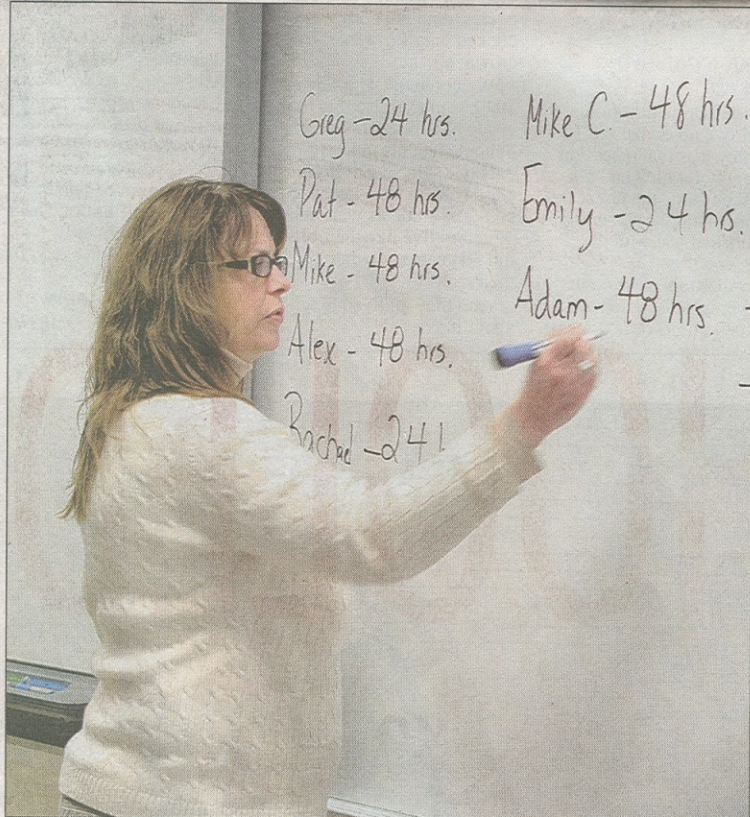 Greg - 24 hrs.
Pat - 48 hrs.
Mike - 48 hrs.
Alex - 48 hrs.
Rachael - 24
Mike C. - 48 hrs.
Emily - 24 hrs.
Adam - 48 hrs.